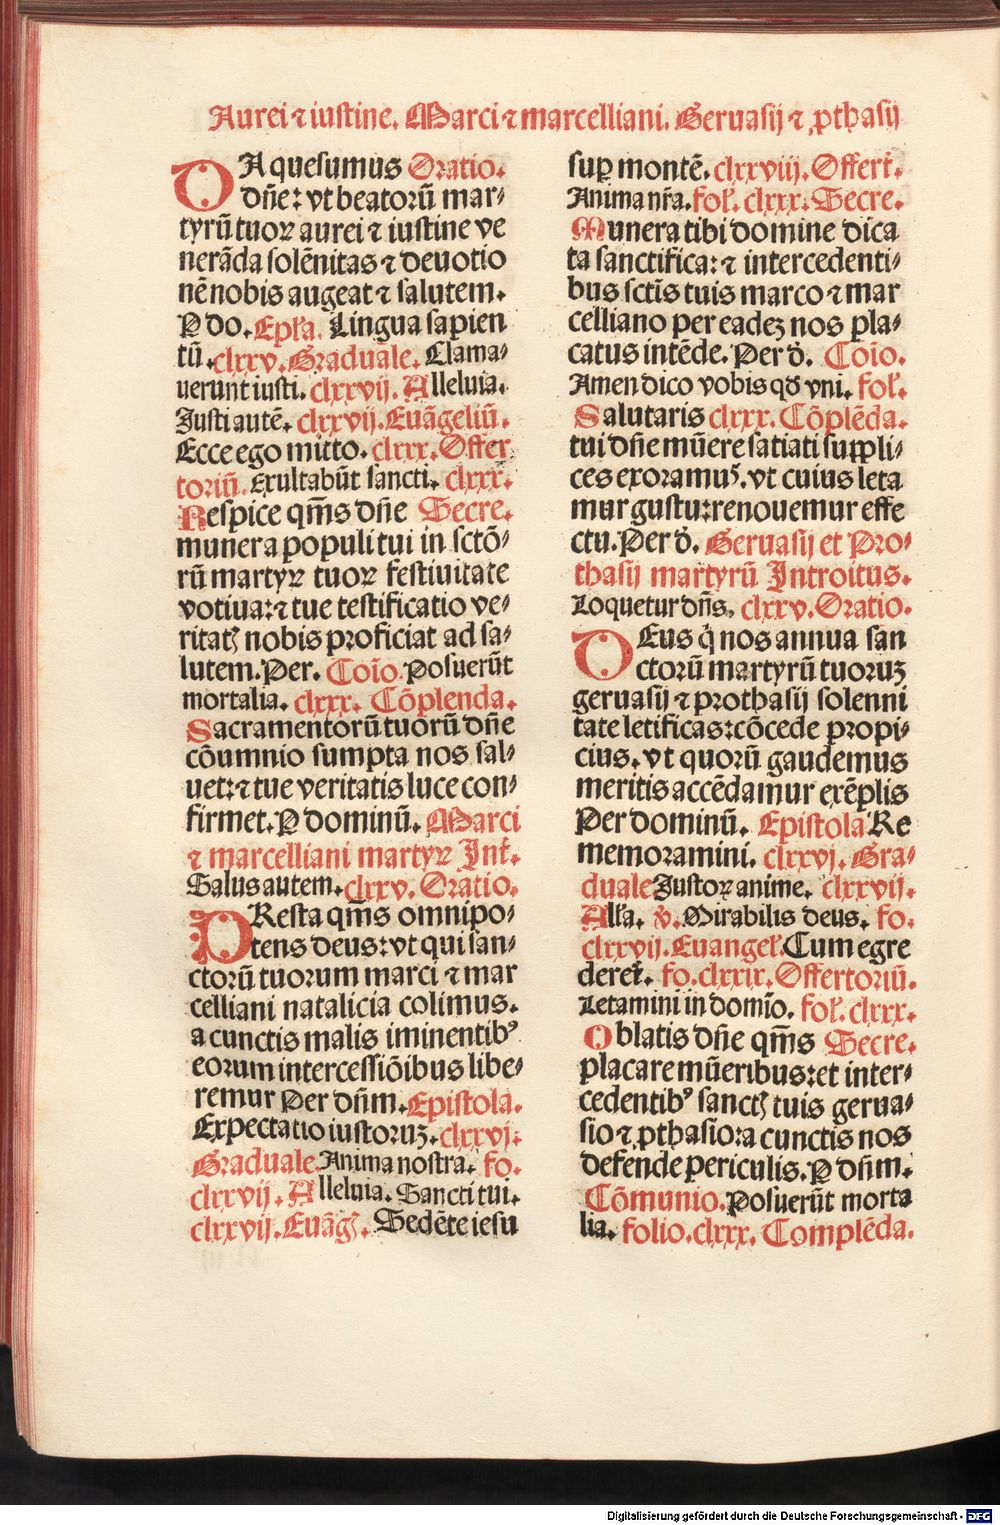 Aurei ⁊ iustine. Marci ⁊ marcelliani. Geruasij ⁊ ꝓthasij
DA quesumus Oratio.
dñe: vt beatorū mar⸗
tyrū tuoꝝ aurei ⁊ iustine ve
nerāda solēnitas ⁊ deuotio
nē nobis augeat ⁊ salutem.
P do. Epła. Lingua sapien
tū. clxxv. Graduale. Clama⸗
uerunt iusti. clxxvij. Alleluia.
Justi autē. clxxvij. Euāgeliū.
Ecce ego mitto. clxxx. Offer
toriū. Exultabūt sancti. clxxx.
Respice qm̄s dñe Secre.
munera populi tui in sctō⸗
rū martyꝝ tuoꝝ festiuitate
votiua: ⁊ tue testificatio ve⸗
ritatꝭ nobis proficiat ad sa⸗
lutem. Per. Coīo. Posuerūt
mortalia. clxxx. Cōplenda.
Sacramentorū tuorū dñe
cōumnio sumpta nos sal⸗
uet: ⁊ tue veritatis luce con⸗
firmet. P dominū. Marci
⁊ marcelliani martyꝝ Int̄.
Salus autem. clxxv. Oratio.
PResta qm̄s omnipo⸗
tens deus: vt qui san⸗
ctorū tuorum marci ⁊ mar
celliani natalicia colimus.
a cunctis malis iminentibꝰ
eorum intercessiōibus libe⸗
remur Per dñm. Epistola.
Expectatio iustoruꝫ. clxxvj.
Graduale. Anima nostra. fo.
clxxvij. Alleluia. Sancti tui.
clxxvij. Euāgꝭ. Sedēte iesu
suꝑ montē. clxxviij. Offert̄.
Anima nr̄a. foł. clxxx. Secre.
Munera tibi domine dica
ta sanctifica: ⁊ intercedenti⸗
bus sctīs tuis marco ⁊ mar
celliano per eadeꝫ nos pla⸗
catus intēde. Per d̄. Coīo.
Amen dico vobis qd̄ vni. foł.
Salutaris clxxx. Cōplēda.
tui dñe mūere satiati suppli⸗
ces exoramuꝰ. vt cuius leta
mur gustu: renouemur effe
ctu. Per d̄. Geruasij et Pro⸗
thasij martyrū Introitus.
Loquetur dñs. clxxv. Oratio.
DEus q̇ nos annua san
ctorū martyrū tuoruꝫ
geruasij ⁊ prothasij solenni
tate letificas: cōcede propi⸗
cius. vt quorū gaudemus
meritis accēdamur exēplis
Per dominū. Epistola Re
memoramini. clxxvj. Gra⸗
duale Justoꝝ anime. clxxvij.
Alła. ℣. Mirabilis deus. fo.
clxxvij. Euangeł. Cum egre
deret̄. fo. clxxix. Offertoriū.
Letamini in domīo. foł. clxxx.
Oblatis dñe qm̄s Secre.
placare mūeribus: et inter⸗
cedentibꝰ sanctꝭ tuis gerua⸗
sio ⁊ ꝓthasio: a cunctis nos
defende periculis. P dñm.
Cōmunio. Posuerūt morta
lia. folio. clxxx. Complēda.
Digitalisierung gefördert durch die Deutsche Forschungsgemeinschaft - DFG